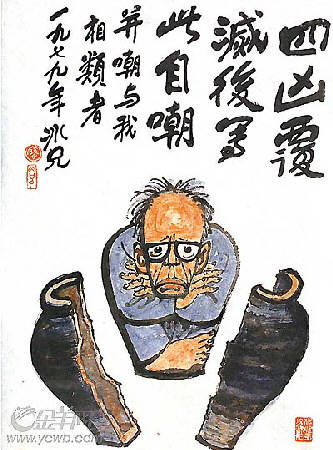 四凶覆
滅後写
此自嘲
并嘲与我
相類者
一九七九年冰兄
金羊网
www.ycwb.com